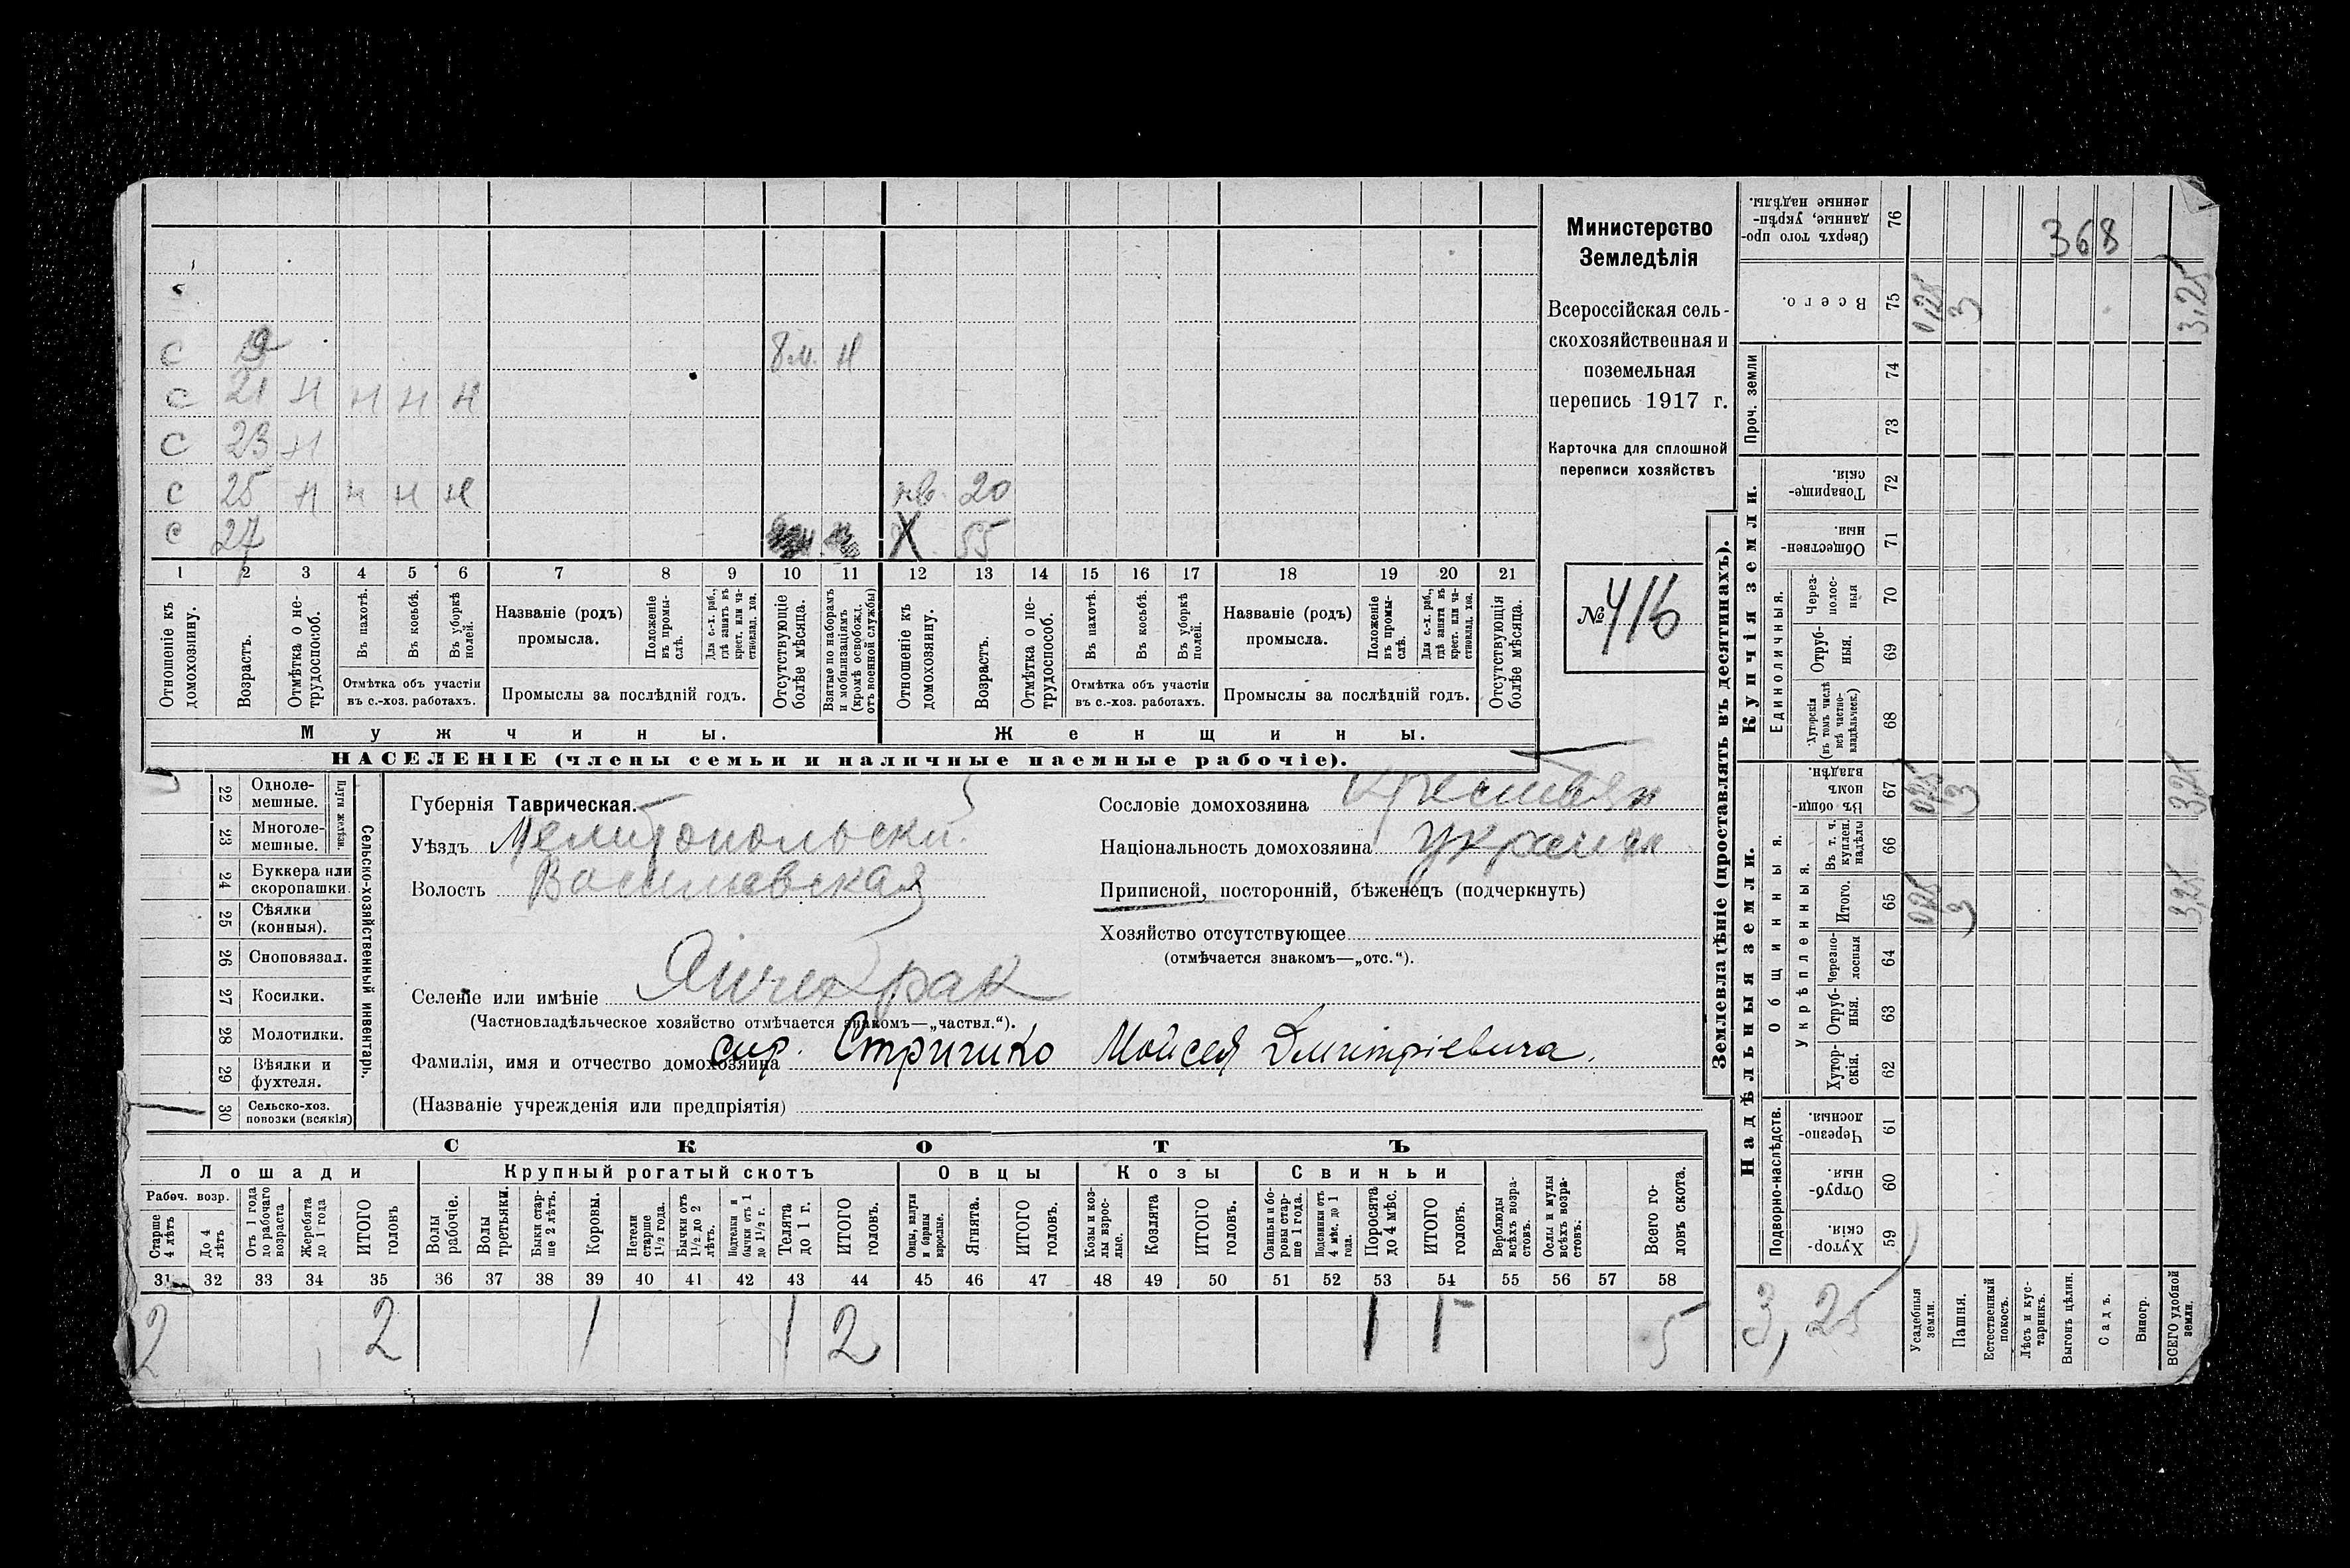 Министерство
Земледѣлія
Всероссійская сель-
скохозяйственная и
поземельная
перепись 1917 г.
Карточка для сплошной
переписи хозяйствъ
№ 416
368
С 19 8 м. н
С 21 н н н н
С 23 н
С 25 н н н н нв. 20
С 27 Х 55
1 2 3 4 5 6 7 8 9 10 11 12 13 14 15 16 17 18 19 20 21
Отношеніе къ домохозяину.
Возрастъ.
Отмѣтка о не-трудоспособ.
Въ пахотѣ.
Въ косьбѣ.
Въ уборкѣ полей.
Отмѣтка объ участіи
въ с.-хоз. работахъ.
Названіе (родъ)
промысла.
Положеніе въ промы-слѣ.
Для с.-х. раб., гдѣ занятъ въ крест. или ча-стновлад. хоз.
Промыслы за послѣдній годъ.
Отсутствующіе болѣе мѣсяца.
Взятые по наборамъ и мобилизаціямъ (кромѣ освобожд. отъ военной службы)
Отношеніе къ домохозяину.
Возрастъ.
Отмѣтка о не-трудоспособ.
Въ пахотѣ.
Въ косьбѣ.
Въ уборкѣ полей.
Отмѣтка объ участіи
въ с.-хоз. работахъ.
Названіе (родъ)
промысла.
Положеніе въ промы-слѣ.
Для с.-х. раб., гдѣ занята въ крест. или ча-стновлад. хоз.
Промыслы за послѣдній годъ.
Отсутствующія болѣе мѣсяца.
Мужчины. Женщины.
НАСЕЛЕНІЕ (члены семьи и наличные наемные рабочіе).
Сельско-хозяйственный инвентарь.
Плуги желѣзн.
22 Одноле-мешные.
23 Многоле-мешные.
24 Буккера или скоропашки.
25 Сѣялки (конныя).
26 Сноповязал.
27 Косилки.
28 Молотилки.
29 Вѣялки и фухтеля.
30 Сельско-хоз. повозки (всякія)
Губернія Таврическая.
Уѣздъ Мелитопольски.
Волость Васильевская
Селеніе или имѣніе Янчекрак
(Частновладѣльческое хозяйство отмѣчается знакомъ—„частвл.“).
Фамилія, имя и отчество домохозяина сир. Стричко Моисея Дмитріевича.
(Названіе учрежденія или предпріятія)
Сословіе домохозяина Крестьян
Національность домохозяина украин
Приписной, посторонній, бѣженецъ (подчеркнуть)
Хозяйство отсутствующее
(отмѣчается знакомъ—„отс.“).
СКОТЪ
Лошади Крупный рогатый скотъ Овцы Козы Свиньи
Рабоч. возр.
Старше 4 лѣтъ
До 4 лѣтъ
Отъ 1 года до рабочаго возраста
Жеребята до 1 года
ИТОГО головъ
Волы рабочіе.
Волы третьяки.
Быки стар-ше 2 лѣтъ.
Коровы.
Нетели старше 1½ года.
Бычки отъ 1½ до 2 лѣтъ.
Подтелки и бычки отъ 1 до 1½ г.
Телята до 1 г.
ИТОГО головъ.
Овцы, валухи и бараны взрослые.
Ягнята.
ИТОГО головъ.
Козы и коз-лы взрос-лые.
Козлята
ИТОГО головъ.
Свиньи и бо-ровы стар-ше 1 года.
Подсвинки отъ 4 мѣс. до 1 года.
Поросята до 4 мѣс.
ИТОГО головъ.
Верблюды всѣхъ возра-стовъ.
Ослы и мулы всѣхъ возра-стовъ.
Всего го-ловъ скота.
31 32 33 34 35 36 37 38 39 40 41 42 43 44 45 46 47 48 49 50 51 52 53 54 55 56 57 58
2 2 1 1 2 1 1 5
Землевладѣніе (проставлять въ десятинахъ).
Надѣльныя земли. Купчія земли.
Подворно-наслѣдств.
59 Хутор-скія.
60 Отруб-ныя.
61 Черезпо-лосныя.
Общинныя.
Укрѣпленныя.
62 Хутор-скія.
63 Отруб-ныя.
64 Черезпо-лосныя
65 Итого. 0,25 3 3,25
66 Въ т. ч. куплен. надѣлы
67 Въ общи-номъ владѣн. 0,25 3 3,25
Единоличныя.
68 Хуторскія (въ томъ числѣ всѣ частно-владѣльческ.)
69 Отруб-ныя.
70 Через-полос-ныя
71 Обществен-ныя.
72 Товарище-скія.
Проч. земли
73
74
75 Всего. 0,25 3 3,25
76 Сверхъ того про-данные, укрѣп-ленные надѣлы.
3,25
Усадебныя земли.
Пашня.
Естественный покосъ.
Лѣсъ и кус-тарникъ.
Выгонъ цѣлин.
Садъ.
Виногр.
ВСЕГО удобной земли.